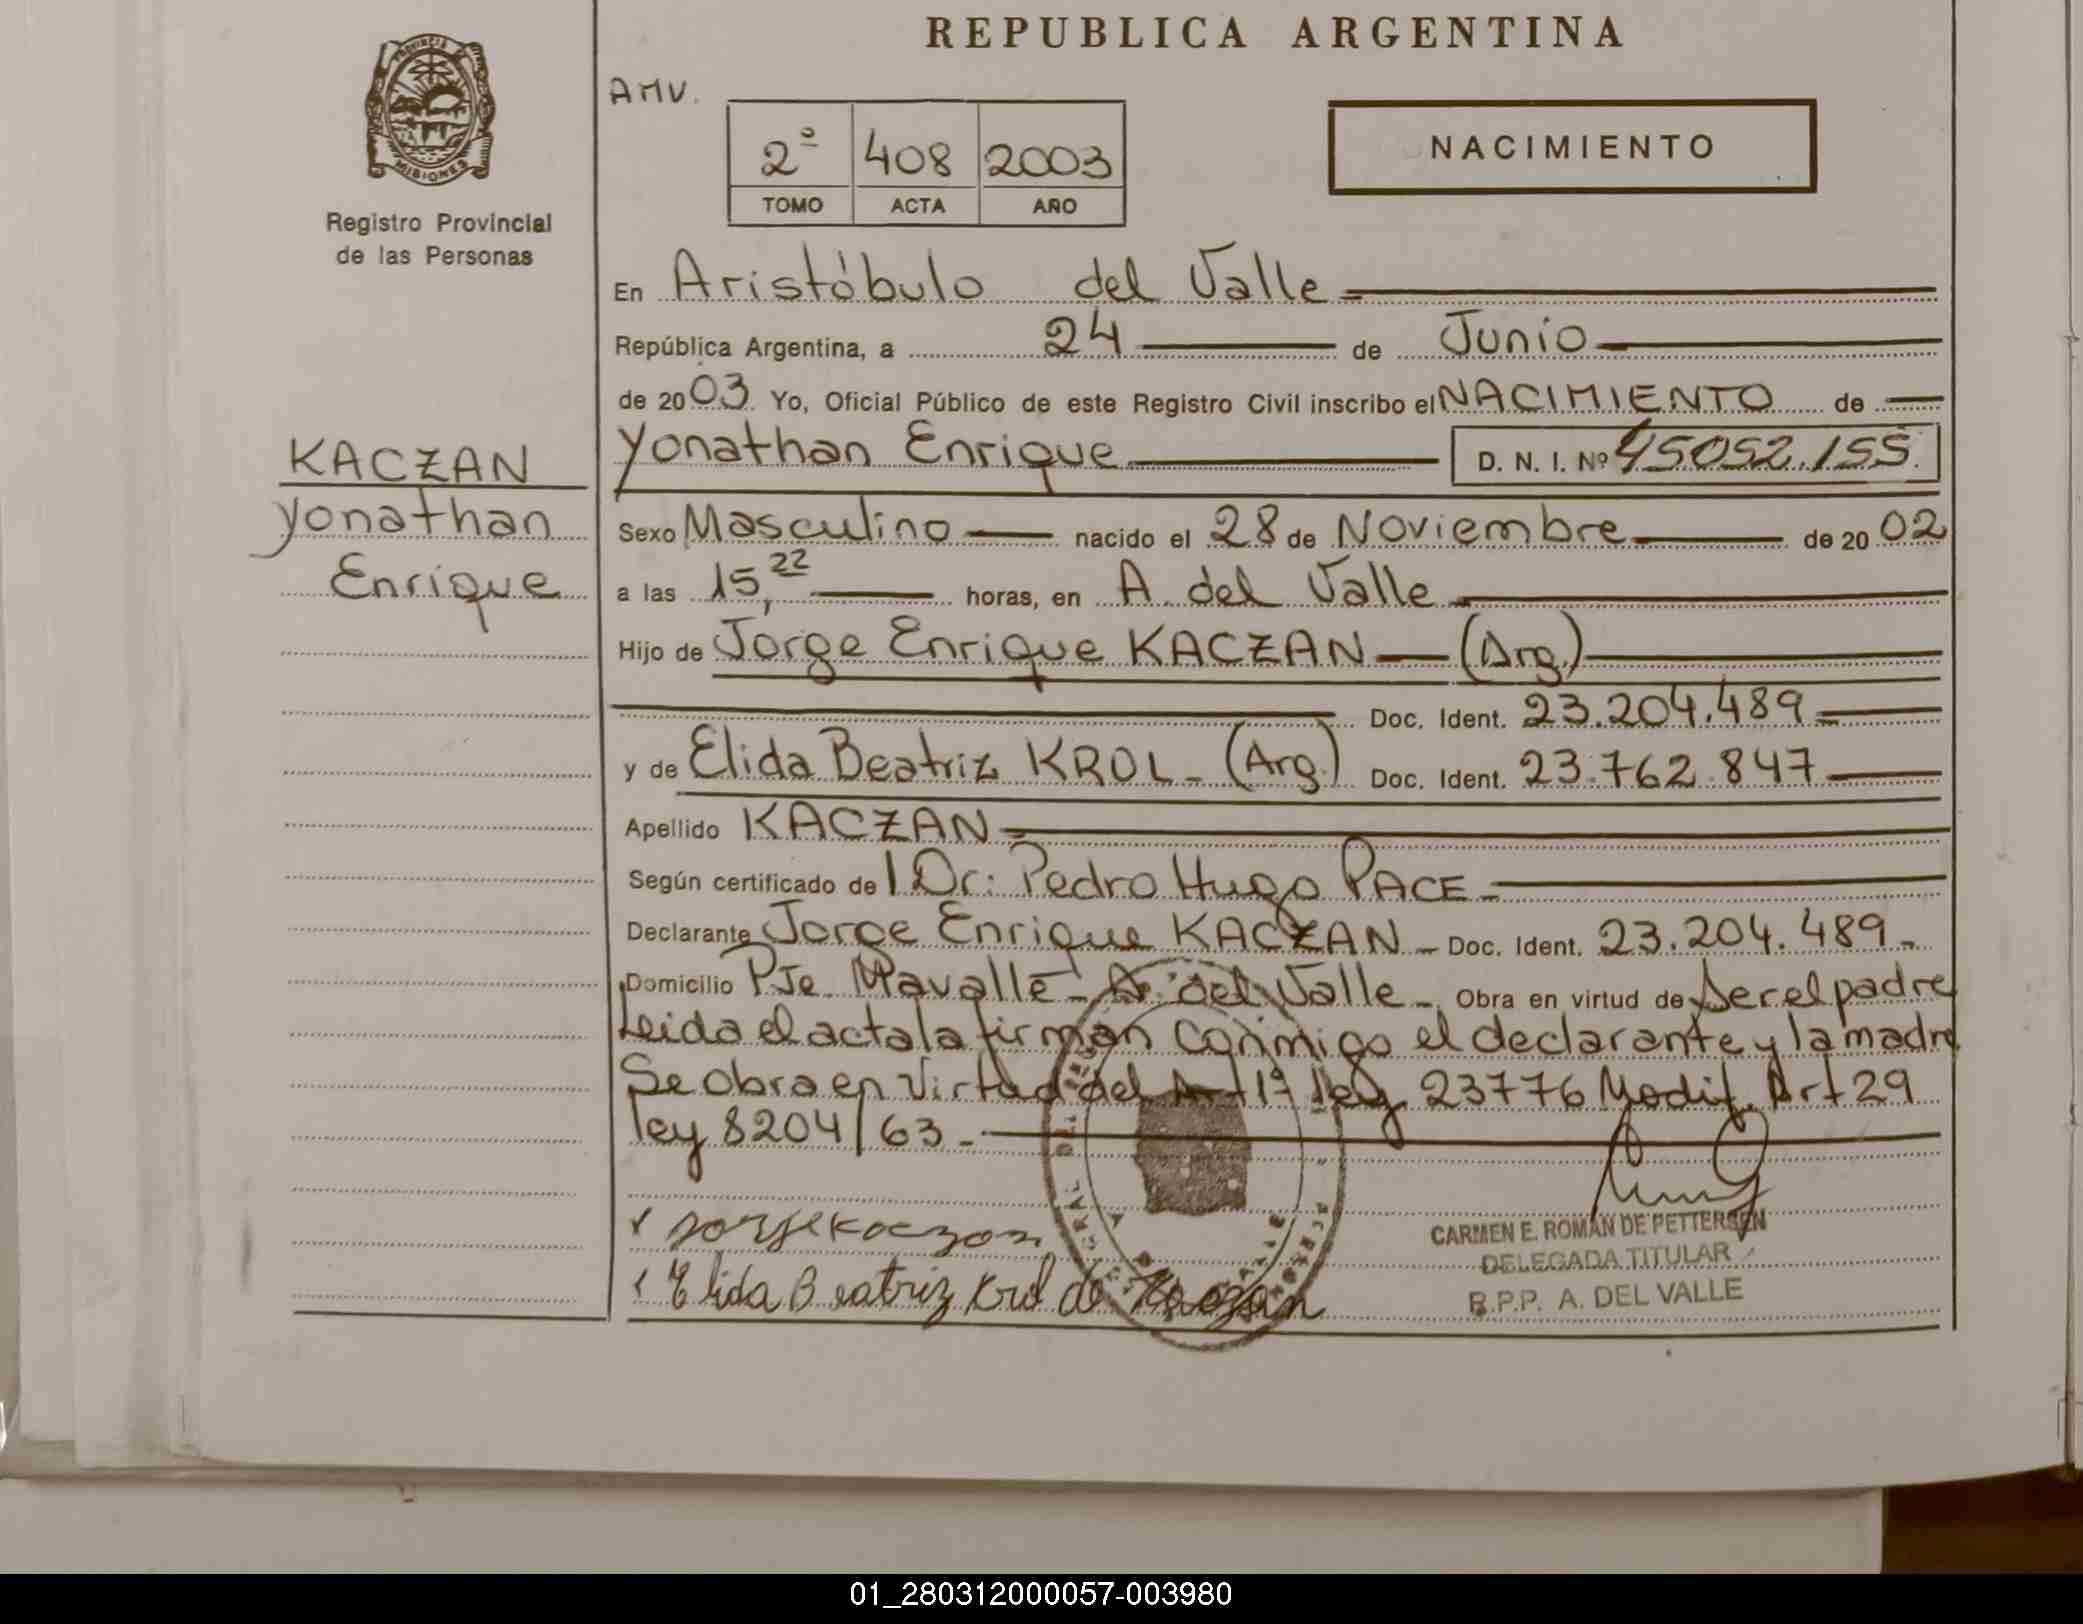 REPUBLICA ARGENTINA
PROVINCIA DE MISIONES
Registro Provincial
de las Personas
AMV.
2º 408 2003
TOMO ACTA AÑO
NACIMIENTO
En Aristóbulo del Valle
República Argentina, a 24 de Junio
de 2003 Yo, Oficial Público de este Registro Civil inscribo el NACIMIENTO de
Yonathan Enrique D. N. I. Nº 45052.155
KACZAN
Yonathan
Enrique
Sexo Masculino nacido el 28 de Noviembre de 2002
a las 15,22 horas, en A. del Valle
Hijo de Jorge Enrique KACZAN (Arg.)
Doc. Ident. 23.204.489
y de Elida Beatriz KROL - (Arg.) Doc. Ident. 23.762.847
Apellido KACZAN
Según certificado de l Dr: Pedro Hugo PACE
Declarante Jorge Enrique KACZAN - Doc. Ident. 23.204.489 -
Domicilio Pje. Mavalle - A. del Valle - Obra en virtud de Ser el padre
Leida el acta la firman conmigo el declarante y la madre
Se obra en virtud del Art 1º ley 23776 Modif. Art 29
ley 8204/63 -
Jorge Kaczan
Elida Beatriz Krol de Kaczan
CARMEN E. ROMAN DE PETTERSEN
DELEGADA TITULAR
R.P.P. A. DEL VALLE
01_280312000057-003980